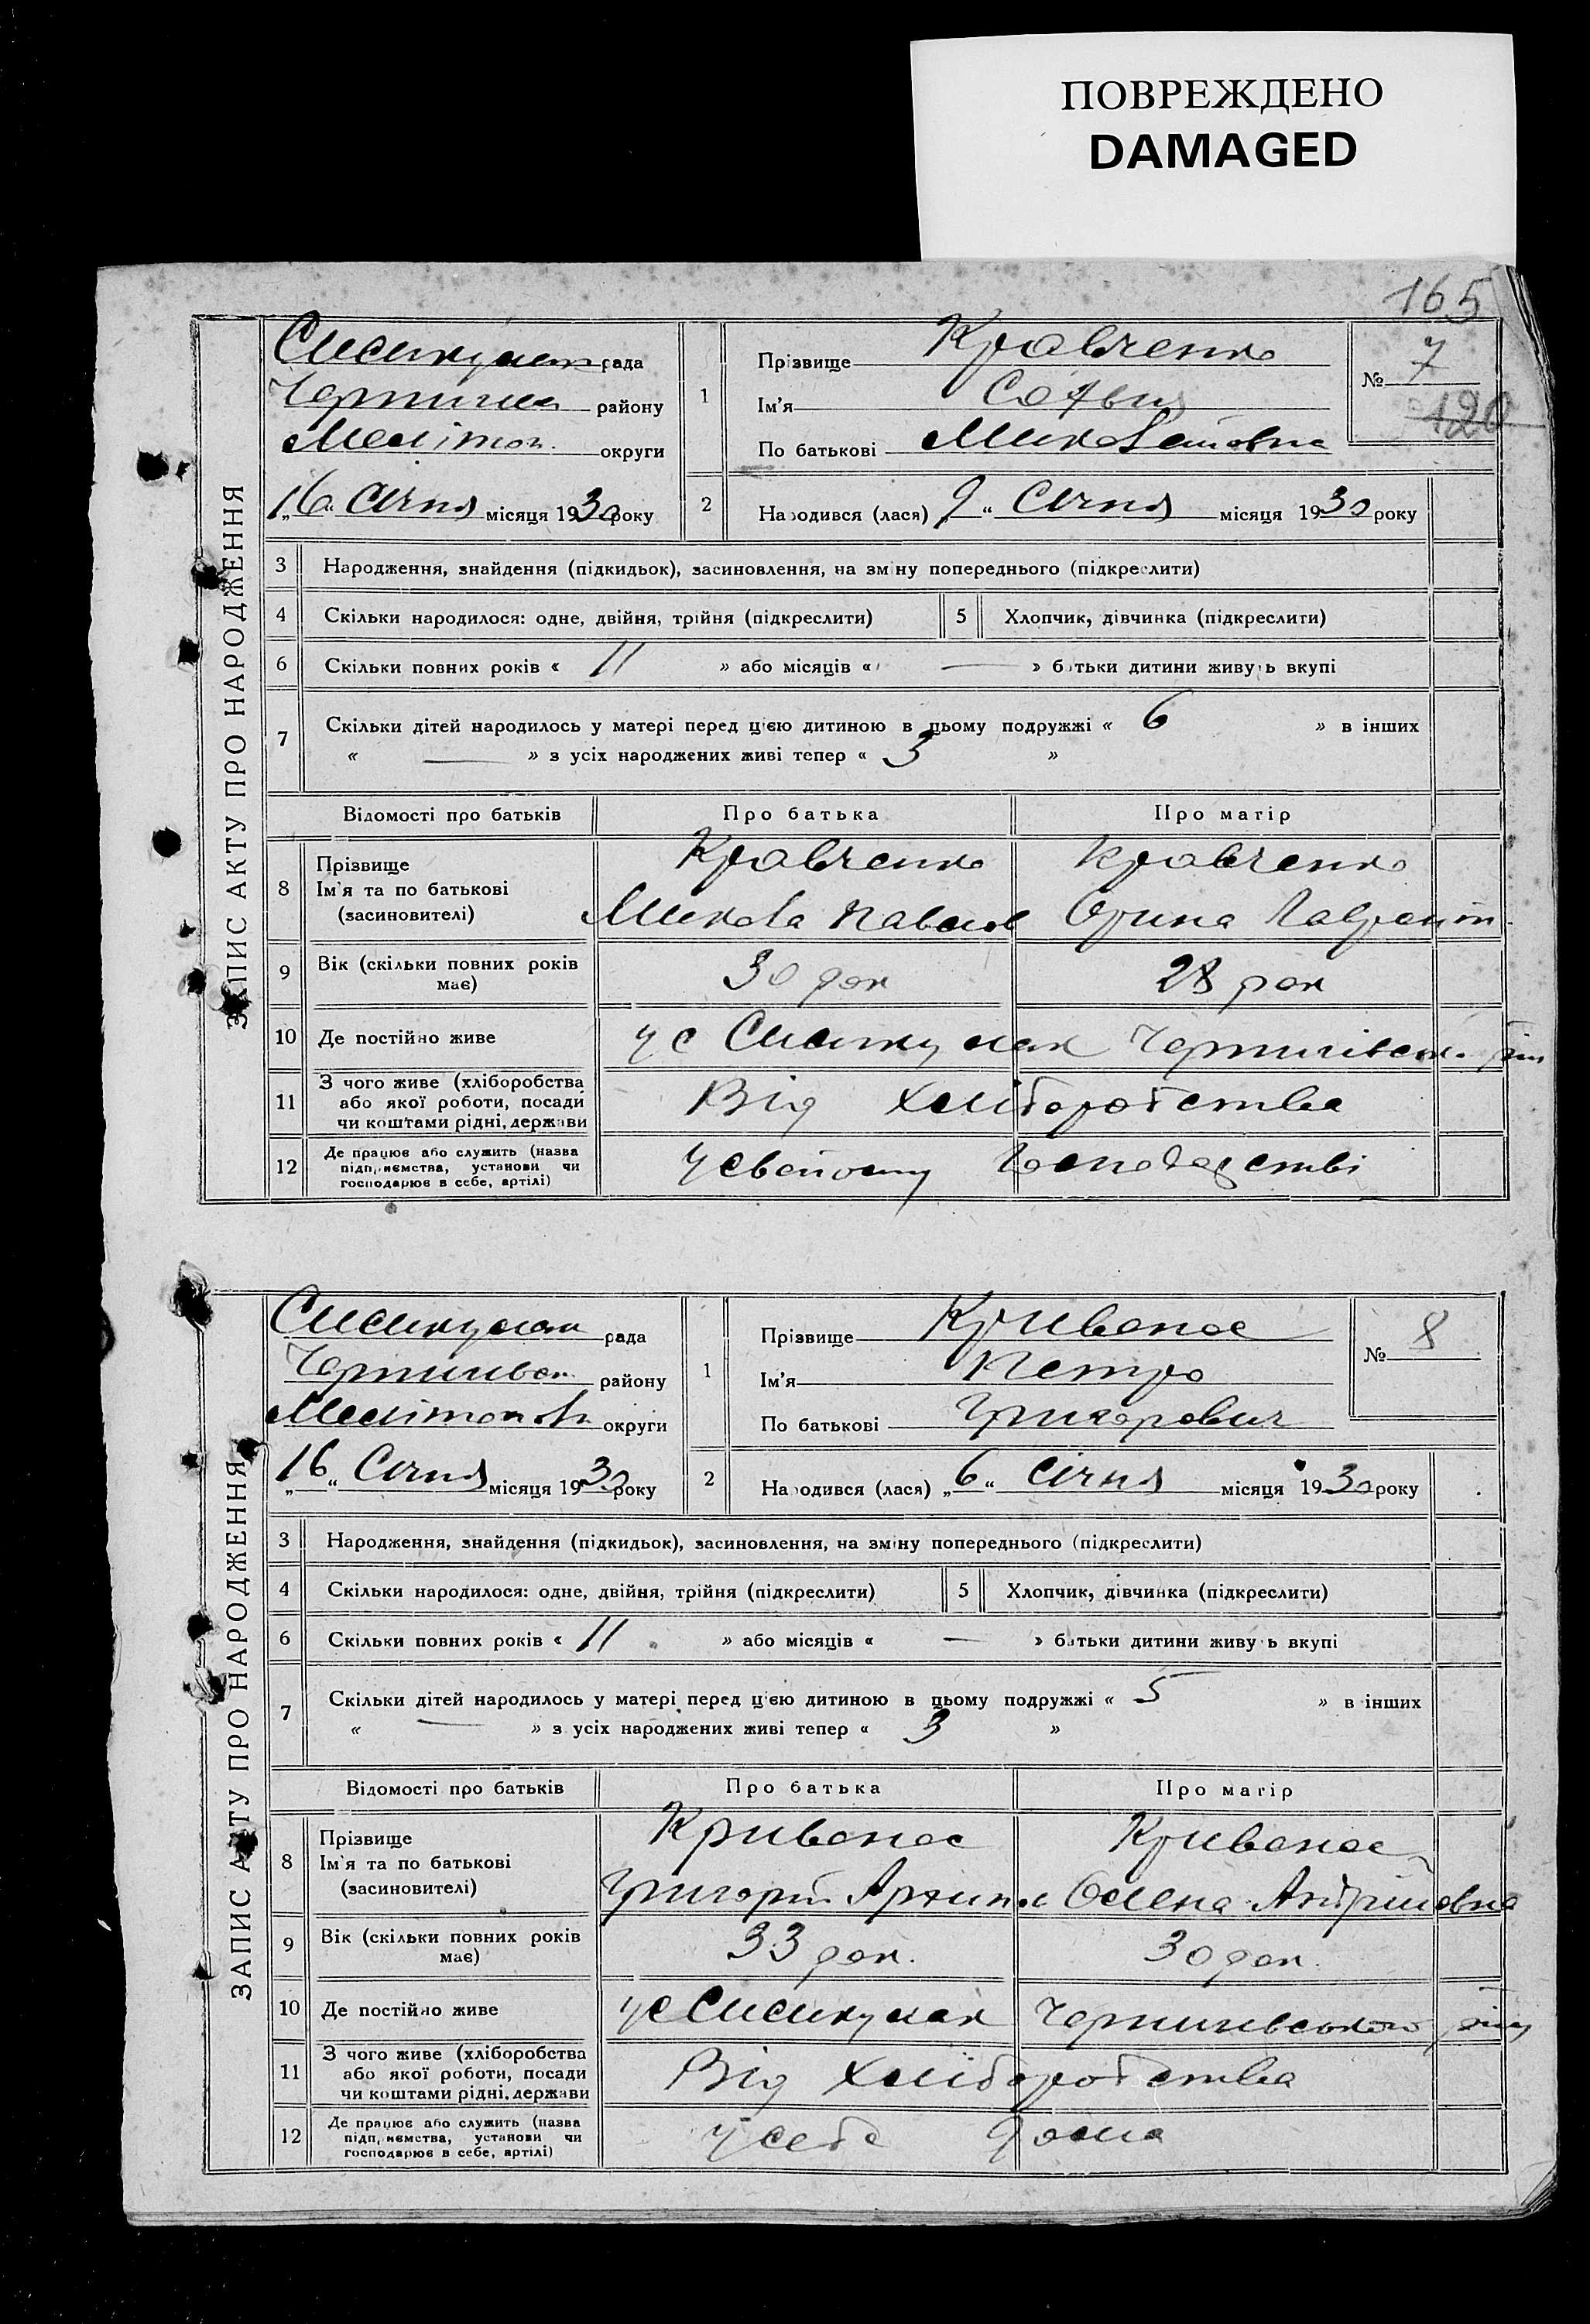 ПОВРЕЖДЕНО
DAMAGED
165
ЗАПИС АКТУ ПРО НАРОДЖЕННЯ
рада
району
Мелітоп. округи
„16“ Січня місяця 1930 року
1
Прізвище Кравченко
Ім'я Софья
По батькові Миколаїовна
№ 7
120
2
Народився (лася) 9 “ Січня місяця 1930 року
3 Народження, знайдення (підкидьок), засиновлення, на зміну попереднього (підкреслити)
4 Скільки народилося: одне, двійня, трійня (підкреслити) 5 Хлопчик, дівчинка (підкреслити)
6 Скільки повних років « 11 » або місяців « — » батьки дитини живуть вкупі
7 Скільки дітей народилось у матері перед цією дитиною в цьому подружжі « 6 » в інших
« — » з усіх народжених живі тепер « 3 »
Відомості про батьків Про батька Про матір
8 Прізвище Кравченко Кравченко
Ім'я та по батькові
(засиновителі) Микола Павлов Орина Лаврент.
9 Вік (скільки повних років має) 30 рок 28 рок
10 Де постійно живе у с
11 З чого живе (хліборобства або якої роботи, посади чи коштами рідні, держави Від хліборобства
12 Де працює або служить (назва підприємства, установи чи господарює в себе, артілі) у свойому господарстві
ЗАПИС АКТУ ПРО НАРОДЖЕННЯ
рада
району
округи
„16“ Січня місяця 1930 року
1
Прізвище Кривонос
Ім'я Петро
По батькові Григорович
№ 8
2
Народився (лася) „6“ Січня місяця 1930 року
3 Народження, знайдення (підкидьок), засиновлення, на зміну попереднього (підкреслити)
4 Скільки народилося: одне, двійня, трійня (підкреслити) 5 Хлопчик, дівчинка (підкреслити)
6 Скільки повних років « 11 » або місяців « — » батьки дитини живуть вкупі
7 Скільки дітей народилось у матері перед цією дитиною в цьому подружжі « 5 » в інших
« — » з усіх народжених живі тепер « 3 »
Відомості про батьків Про батька Про матір
8 Прізвище Кривонос Кривонос
Ім'я та по батькові
(засиновителі) Григорій Олена Андріиовна
9 Вік (скільки повних років має) 33 рок. 30 рок.
10 Де постійно живе у с
11 З чого живе (хліборобства або якої роботи, посади чи коштами рідні, держави Від хліборобства
12 Де працює або служить (назва підприємства, установи чи господарює в себе, артілі) у себе дома